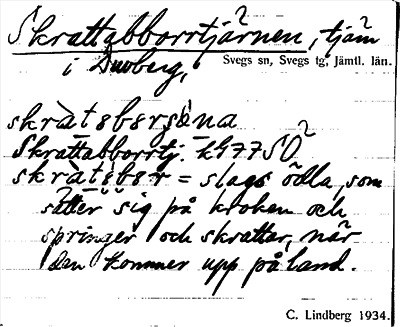 Skrattabborrtjärnen, tjärn
i Duvberg,
Svegs sn, Svegs tg, Jämtl. län.
skràtsbørsǝ̀na
Skrattabborrtj. kG77SO
skràtsbør = slags ödla, som
sätter sig på kroken och
springer och skrattar, när
den kommer upp på land.
C. Lindberg 1934.